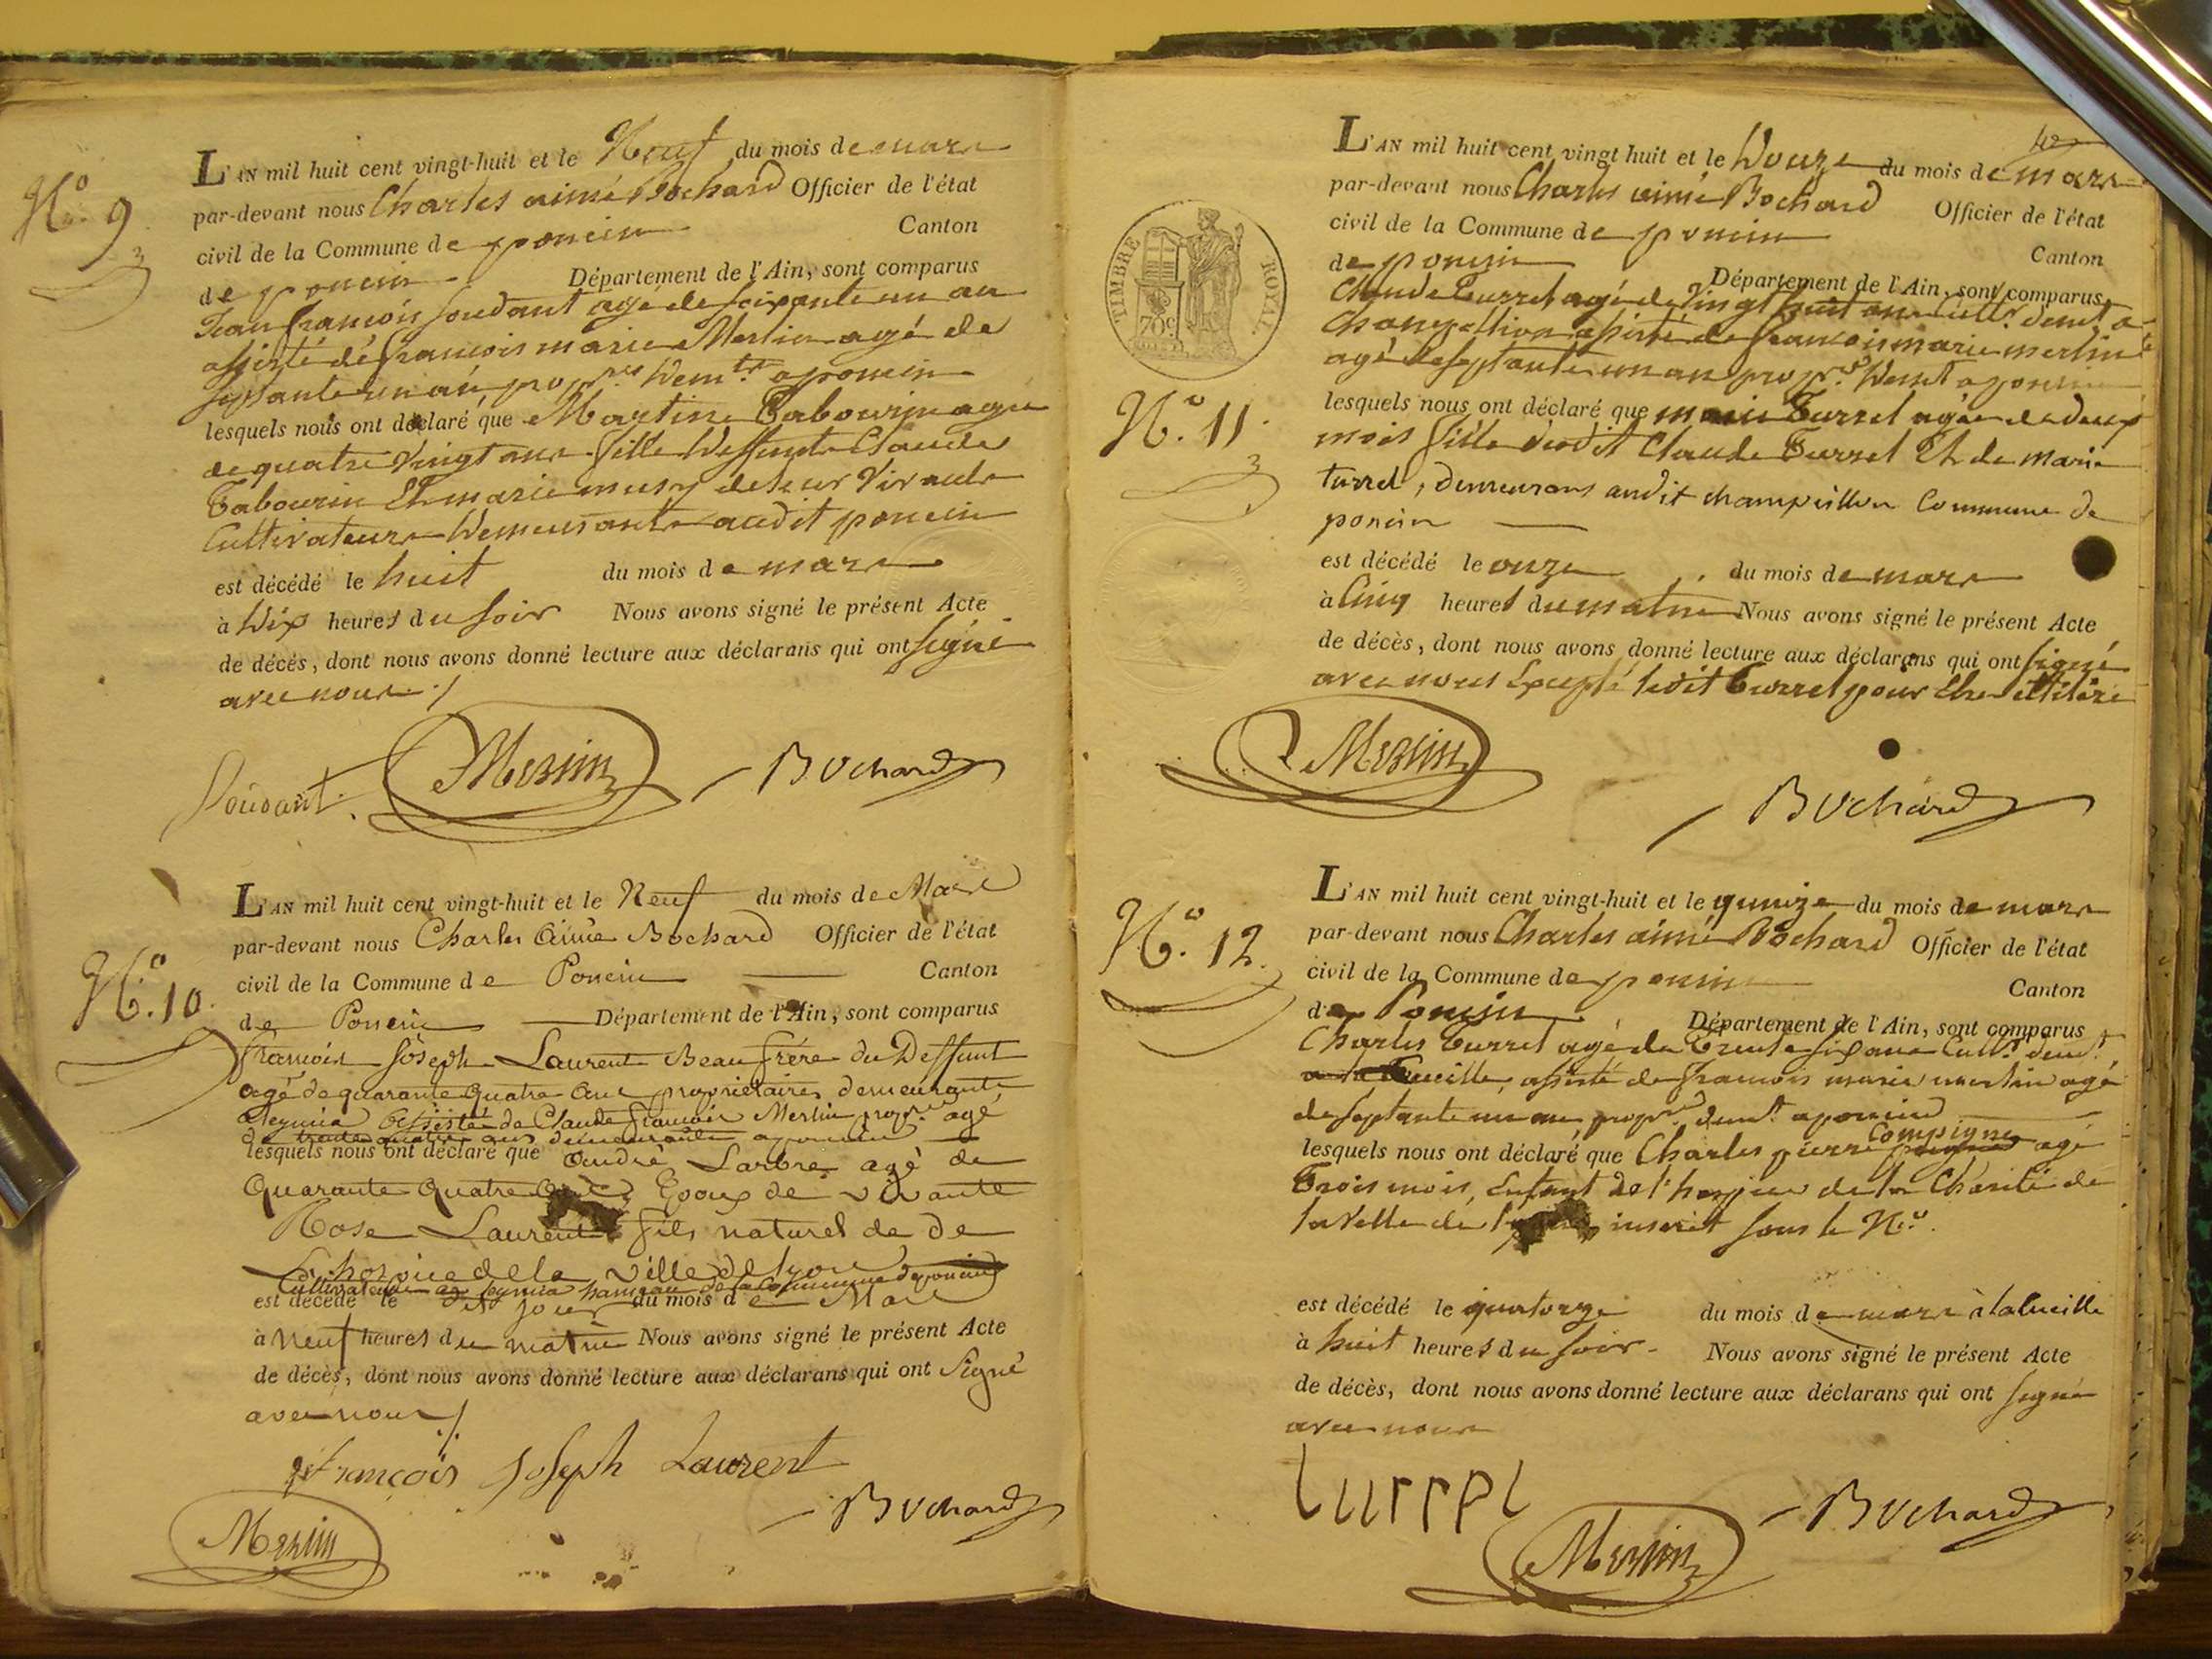 N.º 9
L'AN mil huit cent vingt-huit et le Neuf du mois de mars
par-devant nous Charles aimé Bochard Officier de l'état
civil de la Commune de poncin Canton
de poncin Département de l'Ain, sont comparus
Jean françois soudant agé de soixante un an
assisté de françois marie Merlin agé de
septante un an prop.res Dem.ts a poncin
lesquels nous ont déclaré que Martine Tabourin agée
de quatre vingt ans fille deffunts Claude
Tabourin Et marie de leur Vivants
Cultivateurs Demeurants audit poncin
est décédé le huit du mois de mars
à Dix heures du soir Nous avons signé le présent Acte
de décès, dont nous avons donné lecture aux déclarans qui ont signé
avec nous ./
Soudant. Merlin Bochard
N.º 10.
L'AN mil huit cent vingt-huit et le Neuf du mois de Mars
par-devant nous Charles Aimé Bochard Officier de l'état
civil de la Commune de Poncin Canton
de Poncin Département de l'Ain, sont comparus
françois Joseph Laurent Beau frére du Deffunt
agé de quarante quatre ans propriétaires demeurants
a Leymia assisté de Claude françois Merlin prop.re agé
de trente quatre ans demeurants a poncin
lesquels nous ont déclaré que André Larbre agé de
quarante quatre ans Epoux de vivante
Rose Laurent fils naturel de de
L'hospice de la ville de lyon
Cultivateur a Leymia hameau de la Commune de poncin
est décédé le dit jour du mois de Mars
à neuf heures du matin Nous avons signé le présent Acte
de décès, dont nous avons donné lecture aux déclarans qui ont Signé
avec nous ./.
françois Joseph Laurent
Merlin Bochard
42
TIMBRE ROYAL
70c
N.º 11.
L'AN mil huit cent vingt huit et le Douze du mois de mars
par-devant nous Charles aimé Bochard Officier de l'état
civil de la Commune de poncin Canton
de poncin Département de l'Ain, sont comparus
Claude Turrel agé de Vingt huit ans cult.r dem.t a
Champeillon assisté de françois marie merlin
agé de septante un an prop.re Dem.t a poncin
lesquels nous ont déclaré que marie Turrel agée de deux
mois fille dudit Claude Turrel Et de marie
turrel, demeurans audit champeillon Commune de
poncin
est décédé le onze du mois de mars
à Cinq heures du matin Nous avons signé le présent Acte
de décès, dont nous avons donné lecture aux déclarans qui ont signé
avec nous Excepté ledit Turrel pour Etre illitéré
Merlin
Bochard
N.º 12.
L'AN mil huit cent vingt-huit et le quinze du mois de mars
par-devant nous Charles aimé Bochard Officier de l'état
civil de la Commune de poncin Canton
de Poncin Département de l'Ain, sont comparus
Charles Turrel agé de Trente six ans Cult.r dem.t
a la Cueille, assisté de françois marie merlin agé
de septante un an prop.re dem.t a poncin
lesquels nous ont déclaré que Charles pierre Compigne agé
Trois mois, Enfant de l'hospice de la Charité de
la Ville de inscrit sous le N.º
est décédé le quatorze du mois de mars à la Cueille
à huit heures du soir Nous avons signé le présent Acte
de décès, dont nous avons donné lecture aux déclarans qui ont signé
avec nous
turrel Merlin Bochard